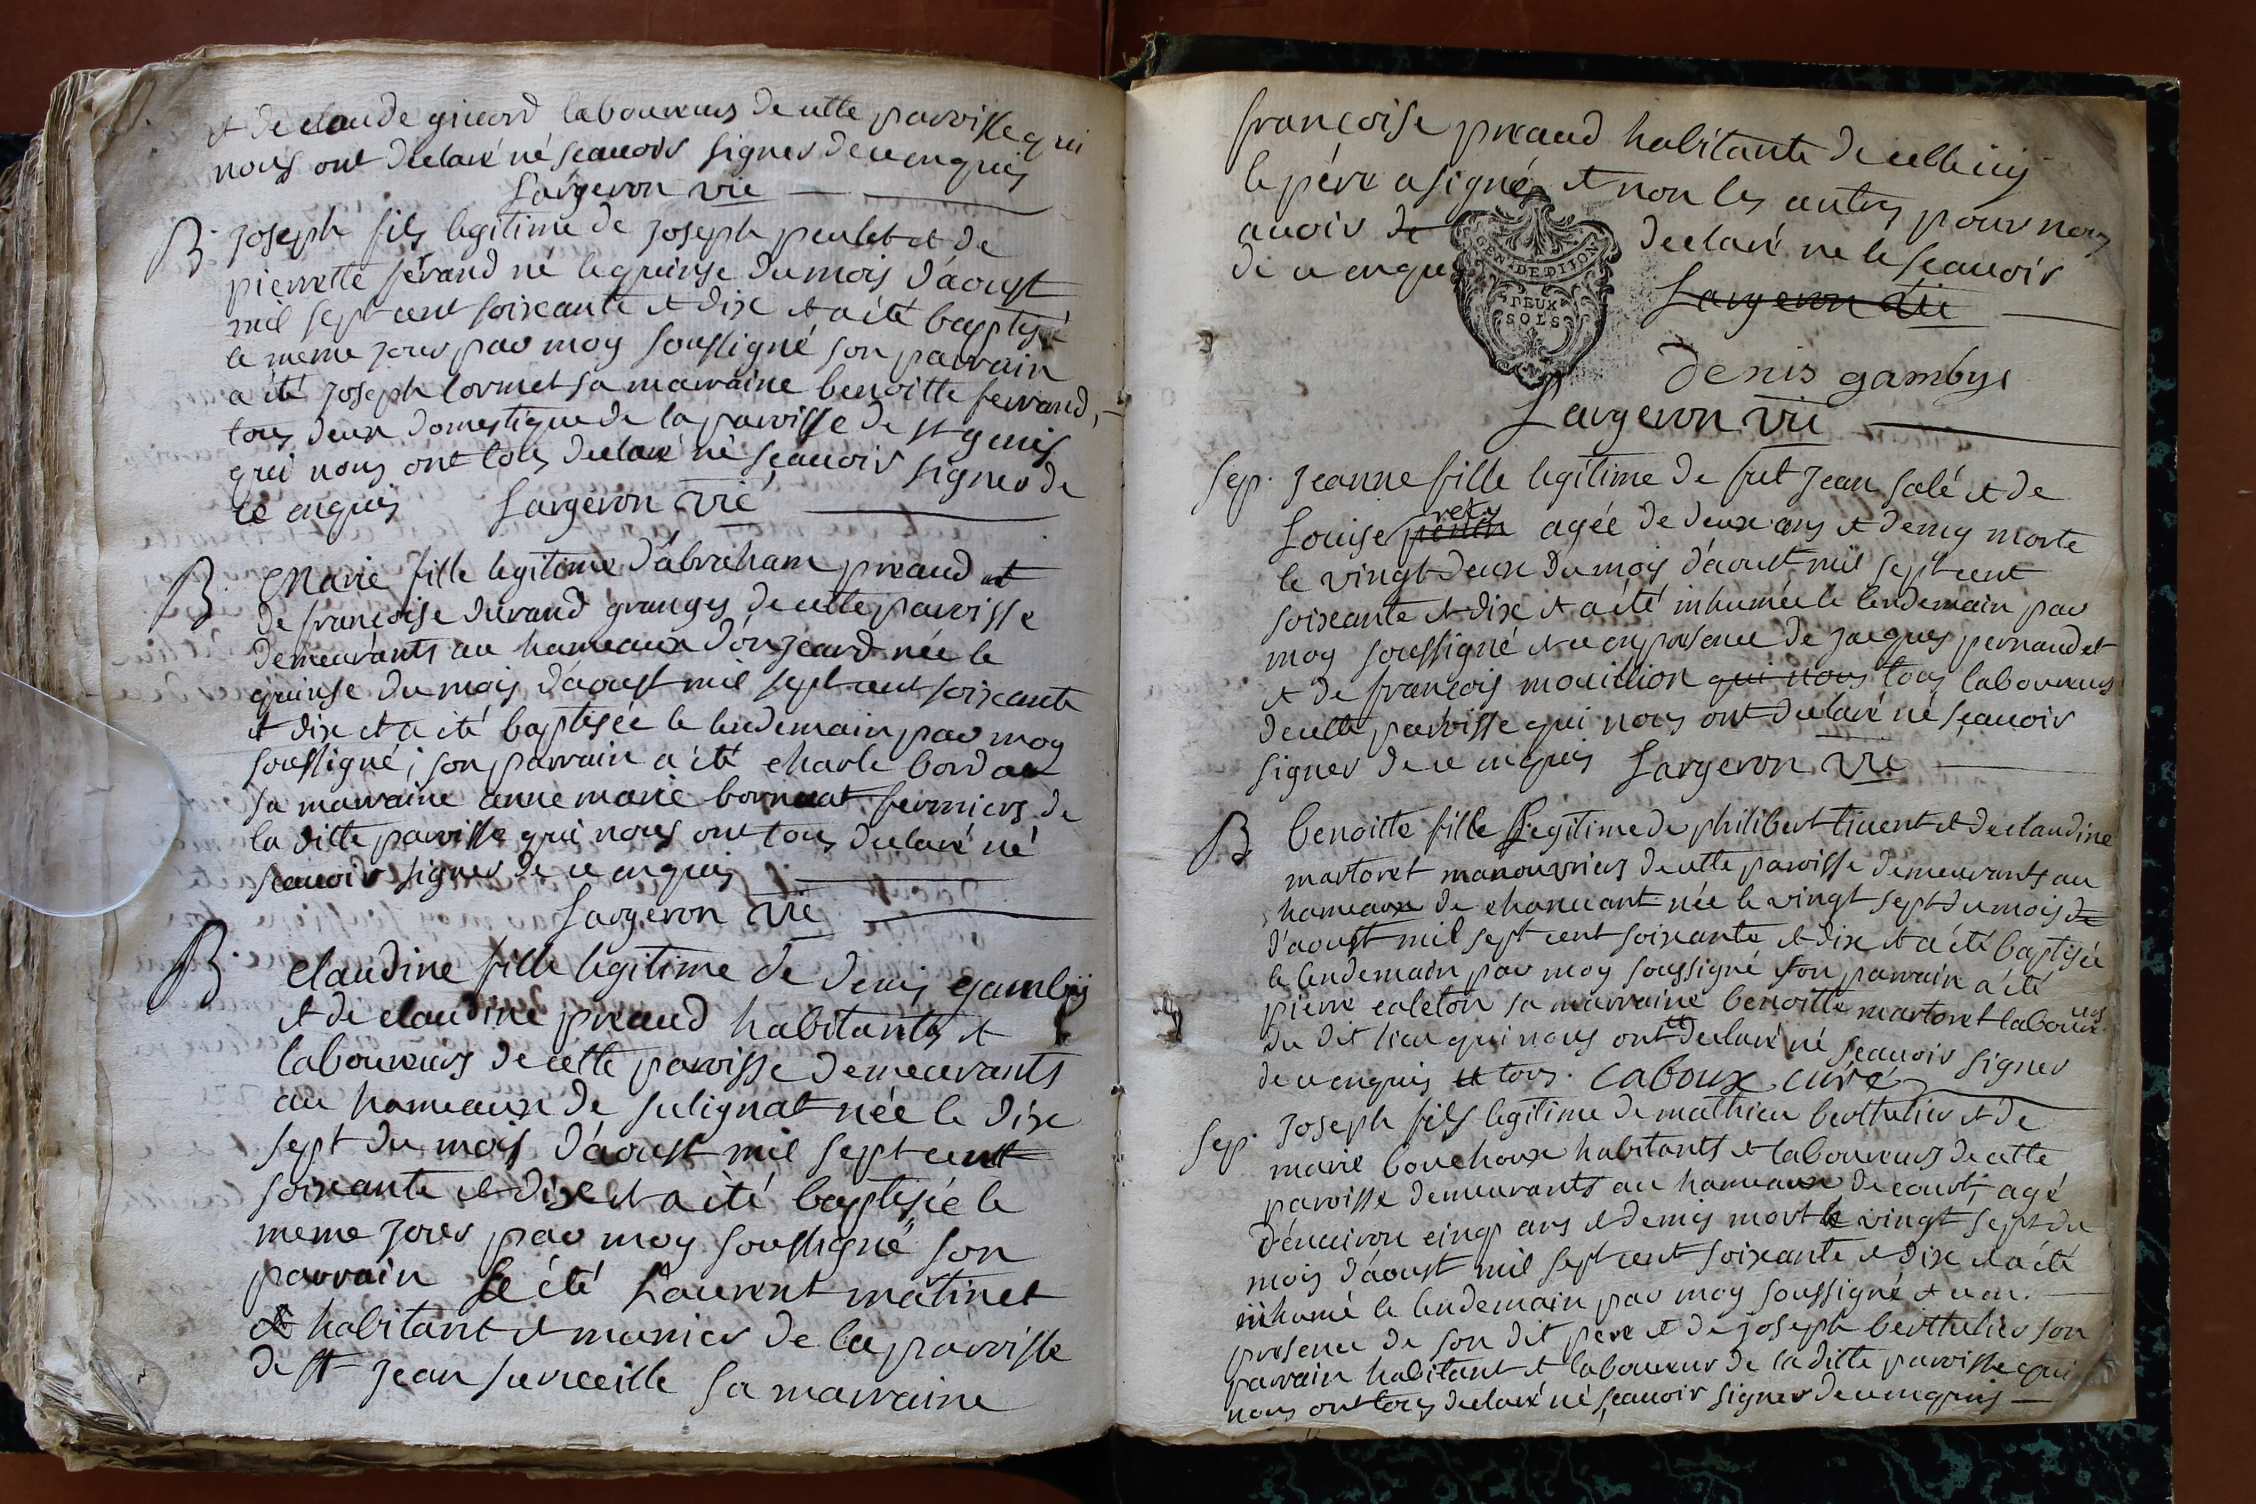 et de claude gricard laboureurs de cette paroisse qui
nous ont declaré né scauoir signer de ce enquis
Largeron vic
B. Joseph fils legitime de Joseph peulet et de
pierrette ferand né le quinse du mois d'aoust
mil sept cent soixante et dix et a été baptisé
le meme jour par moy soussigné son parrain
a été Joseph cormet sa marraine benoitte ferrand,
tous deux domestique de la paroisse de st genis
qui nous ont tous declaré né scauoir signer de
ce enquis Largeron vic
B. Marie fille legitime d'abraham preaud et
de françoise durand granges de cette paroisse
demeurants au hameaux d'onjeard née le
quinse du mois d'aoust mil sept cent soixante
et dix et a été baptisée le lendemain par moy
soussigné ; son parrain a été charle bordat
sa marraine anne marie bornuat fermiers de
la ditte paroisse qui nous ont tous declaré né
scauoir signer de ce enquis
Largeron vic
B. claudine fille legitime de denis gambys
et de claudine preaud habitants et
laboureurs de cette paroisse demeurants
au hameaux de sulignat née le dix
sept du mois d'aoust mil sept cent
soixante et dix et a été baptisée le
meme jour par moy soussigné son
parrain a été Laurent matinet
habitant et munier de la paroisse
de st Jean sur veille sa marraine
françoise preaud habitante de celle icy
le père a signé, et non les autres pour nous
auoir de declaré ne le scauoir
GEN. DE DIJON
de ce enque
DEUX
SOLS
Largeron vic
denis gambys
Largeron vic
sep. Jeanne fille legitime de fut Jean salé et de
rety
Louise agée de deux ans et demy morte
le vingt deux du mois d'aoust mil sept cent
soixante et dix et a été inhumée le lendemain par
moy soussigné et ce en presence de jacques pernaudet
et de françois mouillion qui nous tous laboureurs
de cette paroisse qui nous ont declaré né scauoir
signer de ce enquis Largeron vic
B benoitte fille legitime de philibert tiuent et de claudine
martoret manouuriers de cette paroisse demeurants au
hameaux de chanuant née le vingt sept du mois de
d'aoust mil sept cent soixante et dix et a été baptisée
le lendemain par moy soussigné son parrain a été
pierre caleton sa marraine benoitte martoret laboureurs
du dit lieu qui nous ont declaré né scauoir signer
de ce enquis tous. caboux curé
sep. Joseph fils legitime de mathieu berthelier et de
marie bouchoux habitants et laboureurs de cette
paroisse demeurants au hameaux de court, agé
d'enuiron cinq ans et demis mort le vingt sept du
mois d'aoust mil sept cent soixante et dix et a été
inhumé le lendemain par moy soussigné et ce en
presence de son dit pere et de joseph berthelier son
parrain habitant et laboureur de la ditte paroisse qui
nous ont tous declaré né scauoir signer de ce enquis